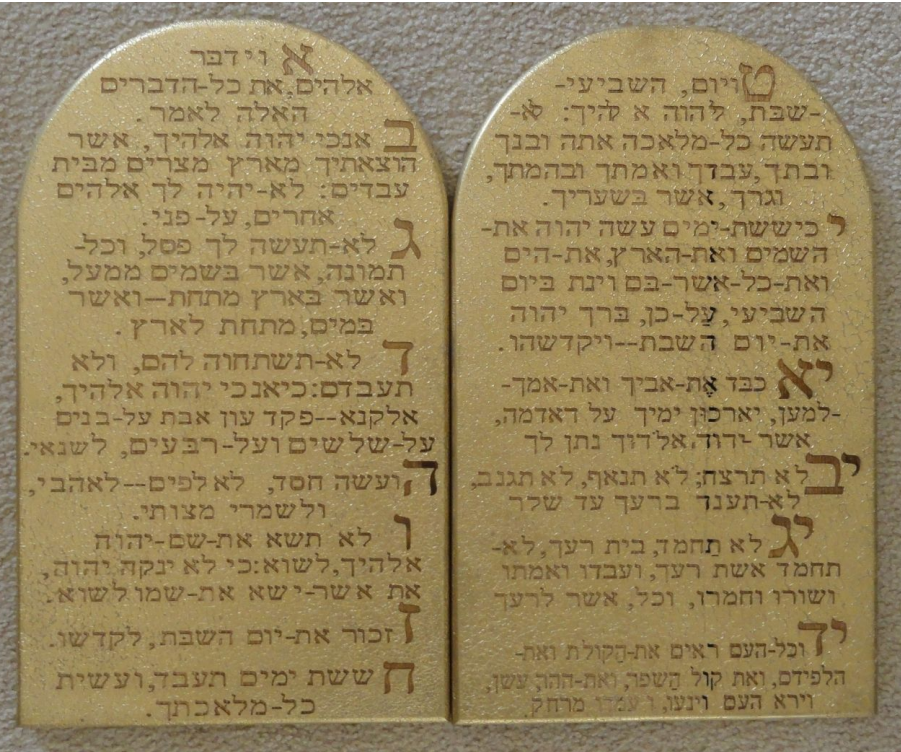 א וידבר
אלהים, את כל-הדברים
האלה לאמר.
ב אנכי יהוה אלהיך, אשר
הוצאתיך מארץ מצרים מבית
עבדים: לא-יהיה לך אלהים
אחרים, על-פני.
ג לא-תעשה לך פסל, וכל-
תמונה, אשר בשמים ממעל,
ואשר בארץ מתחת--ואשר
במים, מתחת לארץ.
ד לא-תשתחוה להם, ולא
תעבדם: כיאנכי יהוה אלהיך,
אלקנא--פקד עון אבת על-בנים
על-שלשים ועל-רבעים, לשנאי.
ה ועשה חסד, לאלפים--לאהבי,
ולשמרי מצותי.
ו לא תשא את-שם-יהוה
אלהיך, לשוא: כי לא ינקה יהוה,
את אשר-ישא את-שמו לשוא.
ז זכור את-יום השבת, לקדשו.
ח ששת ימים תעבד, ועשית
כל-מלאכתך.
ט ויום, השביעי-
-שבת, ליהוה א להיך: לא-
תעשה כל-מלאכה אתה ובנך
ובתך, עבדך ואמתך ובהמתך,
וגרך, אשר בשעריך.
י כיששת-ימים עשה יהוה את-
השמים ואת-הארץ, את-הים
ואת-כל-אשר-בם וינח ביום
השביעי, על-כן, ברך יהוה
את-יום השבת--ויקדשהו.
יא כבד את-אביך ואת-אמך-
-למען, יארכון ימיך על האדמה,
אשר יהוה אלהיך נתן לך
יב לא תרצח; לא תנאף, לא תגנב,
לא-תענה ברעך עד שקר
יג לא תחמד, בית רעך, לא-
תחמד אשת רעך, ועבדו ואמתו
ושורו וחמרו, וכל, אשר לרעך
יד וכל-העם ראים את-הקולת ואת-
הלפידם, ואת קול השפר, ואת-ההר, עשן,
וירא העם וינעו, ויעמדו מרחק.